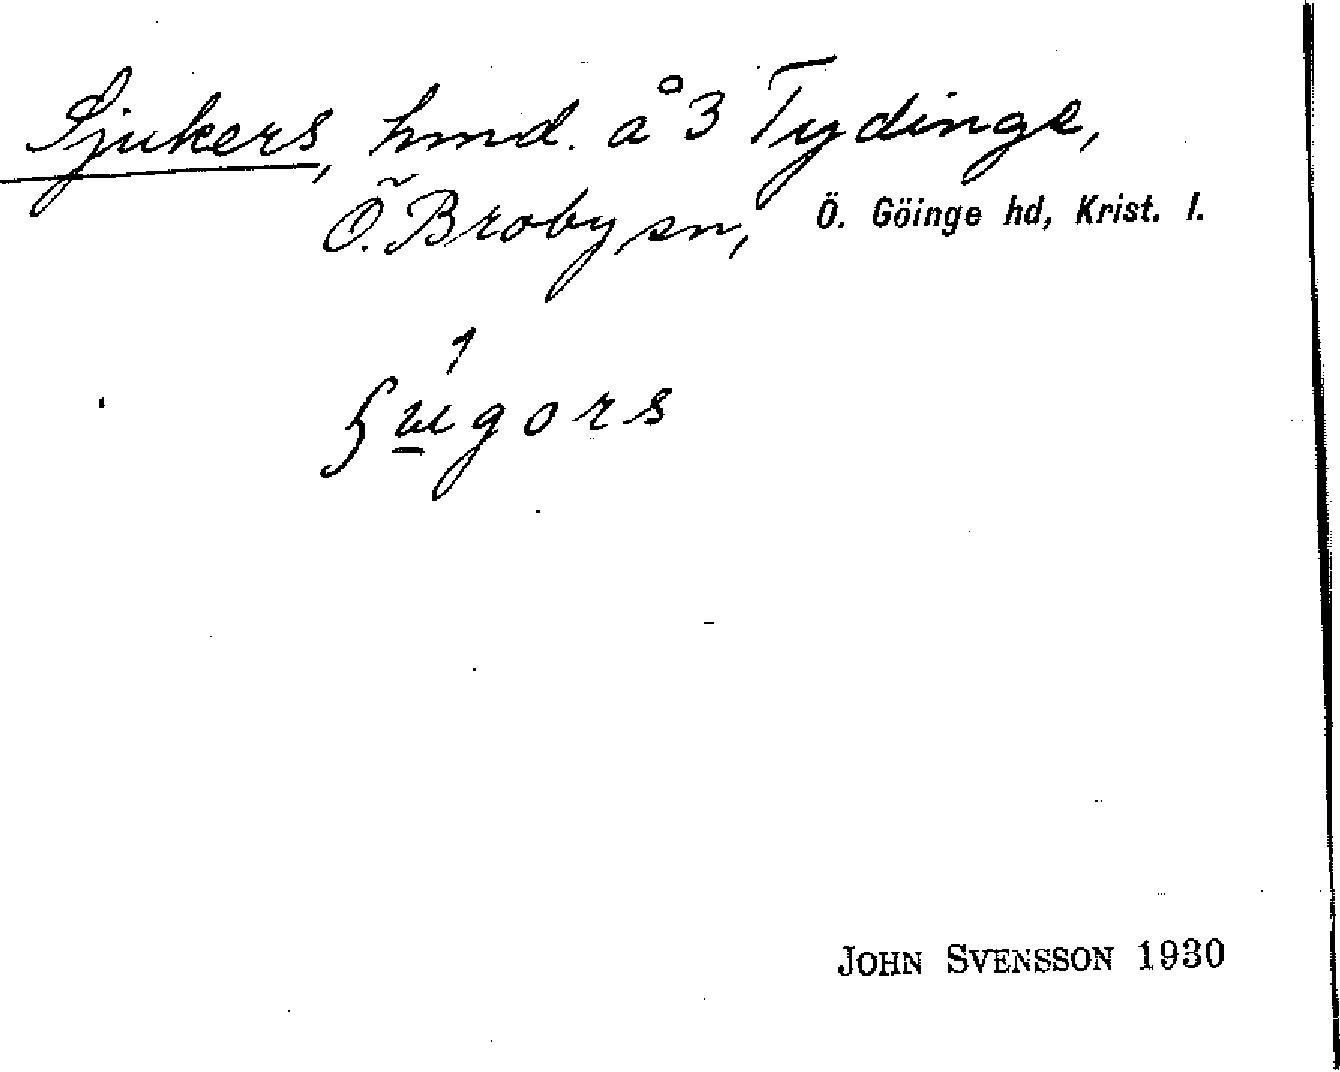 Sjukers, hmd. å 3 Tydinge,
Ö. Broby sn, Ö. Göinge hd, Krist. l.
JOHN SVENSSON 1930